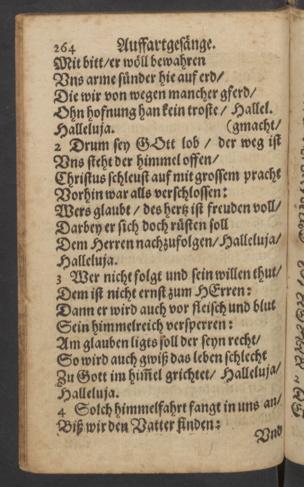 264 Auffartgesänge.
Mit bitt/er wöll bewahren
Vns arme sünder hie auf erd/
Die wir von wegen mancher gferd/
Ohn hofnung han kein troste/ Hallel.
Halleluja. (gmacht/
2 Drum sey GOtt lob / der weg ist
Vns steht der himmel offen/
Christus schleust auf mit grossem pracht
Vorhin war alls verschlossen:
Wers glaubt / des hertz ist freuden voll/
Darbey er sich doch rüsten soll
Dem Herren nachzufolgen/Halleluja/
Halleluja.
3 Wer nicht folgt und sein willen thut/
Dem ist nicht ernst zum HErren:
Dann er wird auch vor fleisch und blut
Sein himmelreich versperren:
Am glauben ligts soll der seyn recht/
So wird auch gwiß das leben schlecht
Zu Gott im him̃el grichtet/ Halleluja/
Halleluja.
4 Solch himmelfahrt fangt in uns an/
Biß wir den Vatter finden:
Vnd